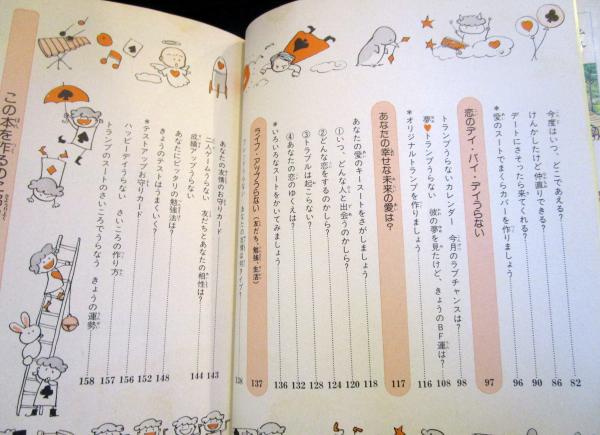 今度はいつ、どこであえる? 82
けんかしたけど仲直りできる? 86
デートにさそったら来てくれる? 90
*愛のスートでまくらカバーを作りましょう 96
恋のデイ・バイ・デイうらない 97
トランプうらないカレンダー 今月のラブチャンスは? 98
夢♥トランプうらない 彼の夢を見たけど、きょうのBF運は? 108
*オリジナルトランプを作りましょう 116
あなたの幸せな未来の愛は? 117
あなたの愛のキースートをさがしましょう 118
①いつ、どんな人と出会うのかしら? 120
②どんな恋をするのかしら? 124
③トラブルは起こらない? 128
④あなたの恋のゆくえは? 132
*いろいろなスートをかいてみましょう 136
ライフ・アップうらない(友だち、勉強、生活) 137
138
あなたの友情のお守りカード 143
二人ゲームうらない 友だちとあなたの相性は? 144
成績アップうらない
あなたにピッタリの勉強法は?
きょうのテストはうまくいく? 148
*テストアップお守りカード 152
ハッピーデイうらない さいころの作り方 156
157
トランプのスートのさいころでうらなう きょうの運勢 158
この本を作るのに